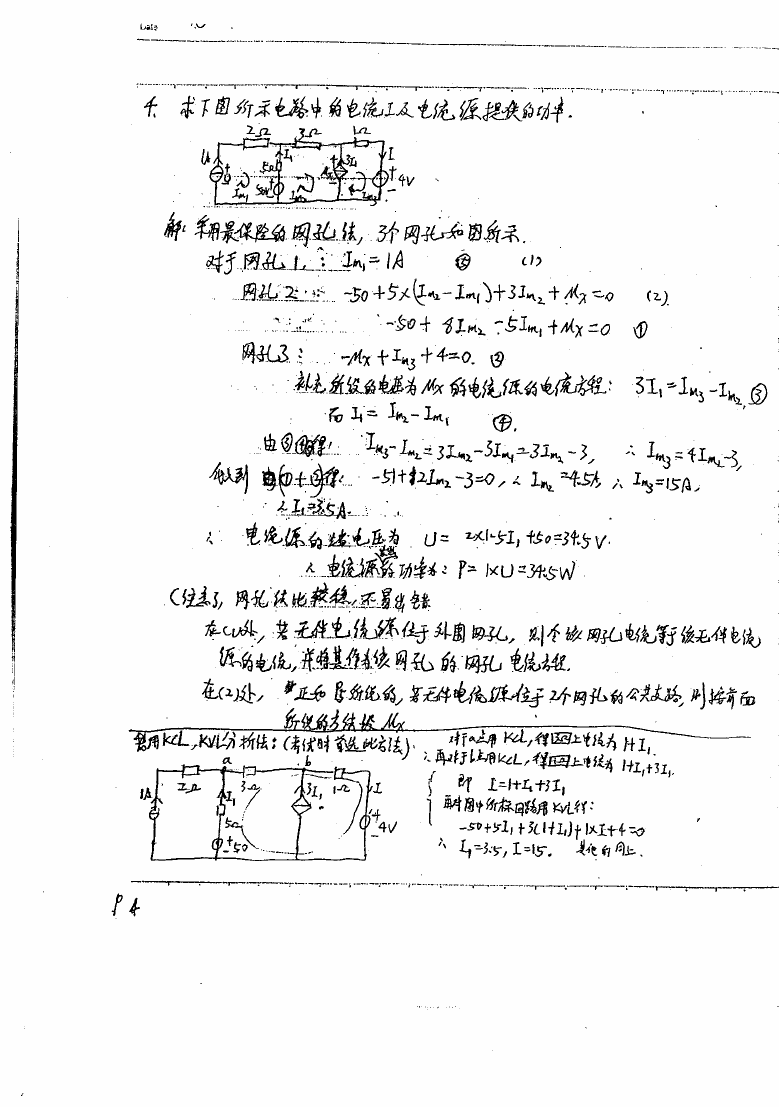 Date
4. 求下图所示电路中的电流I及电流源提供的功率.
2Ω 3Ω 1Ω
I₁ 5Ω 3I₁ I
50V 4V
Im₁ Im₂ Im₃
解: 采用最保险的网孔法, 3个网孔如图所示.
对于网孔1: Im₁=1A (1)
网孔2: -50+5×(Im₂-Im₁)+3Im₂+Mx=0 (2)
-50+8Im₂-5Im₁+Mx=0 ①
网孔3: -Mx+Im₃+4=0. ②
补充所设的电压为Mx的电流源的电流方程: 3I₁=Im₃-Im₂ ③
而 I₁=Im₂-Im₁ ④.
由③④得: Im₃-Im₂=3Im₂-3Im₁=3Im₂-3, ∴ Im₃=4Im₂-3,
得: -51+12Im₂-3=0, ∴ Im₂=4.5A ∴ Im₃=15A,
∴ I₁=3.5A.
∴ 电流源的电压为 U= 2×1+5I₁+50=34.5V.
∴ 电流源的功率为: P=1×U=34.5W
(注意了, 网孔法比较稳, 不易出错
在(1)处, 若无伴电流源位于外围网孔, 则令该网孔电流等于该无伴电流
源的电流, 并将其作为该网孔的网孔电流方程.
在(2)处, 正如所说的, 若无伴电流源位于2个网孔的公共支路, 则按前面
所说的方法设Mx
用KCL, KVL分析法: (考试时首选此方法)
对于a点用KCL, 得3Ω上电流为 1+I₁.
∴再对于b点用KCL, 得1Ω上电流为 1+I₁+3I₁.
即 I=1+I₁+3I₁
再对图中所标回路用KVL得:
-50+5I₁+3(1+I₁)+1×I+4=0
∴ I₁=3.5, I=15. 其他的同上.
a b
1A 2Ω 3Ω 1Ω
I₁ 5Ω 3I₁ I
50 4V
P4